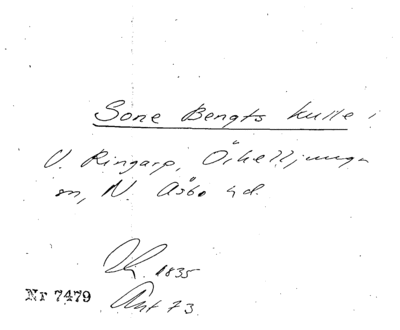 Sone Bengts kulle i
V. Ringarp, Örkelljunga
sn, N. Åsbo hd.
1835
Nr 7479
Ant 73